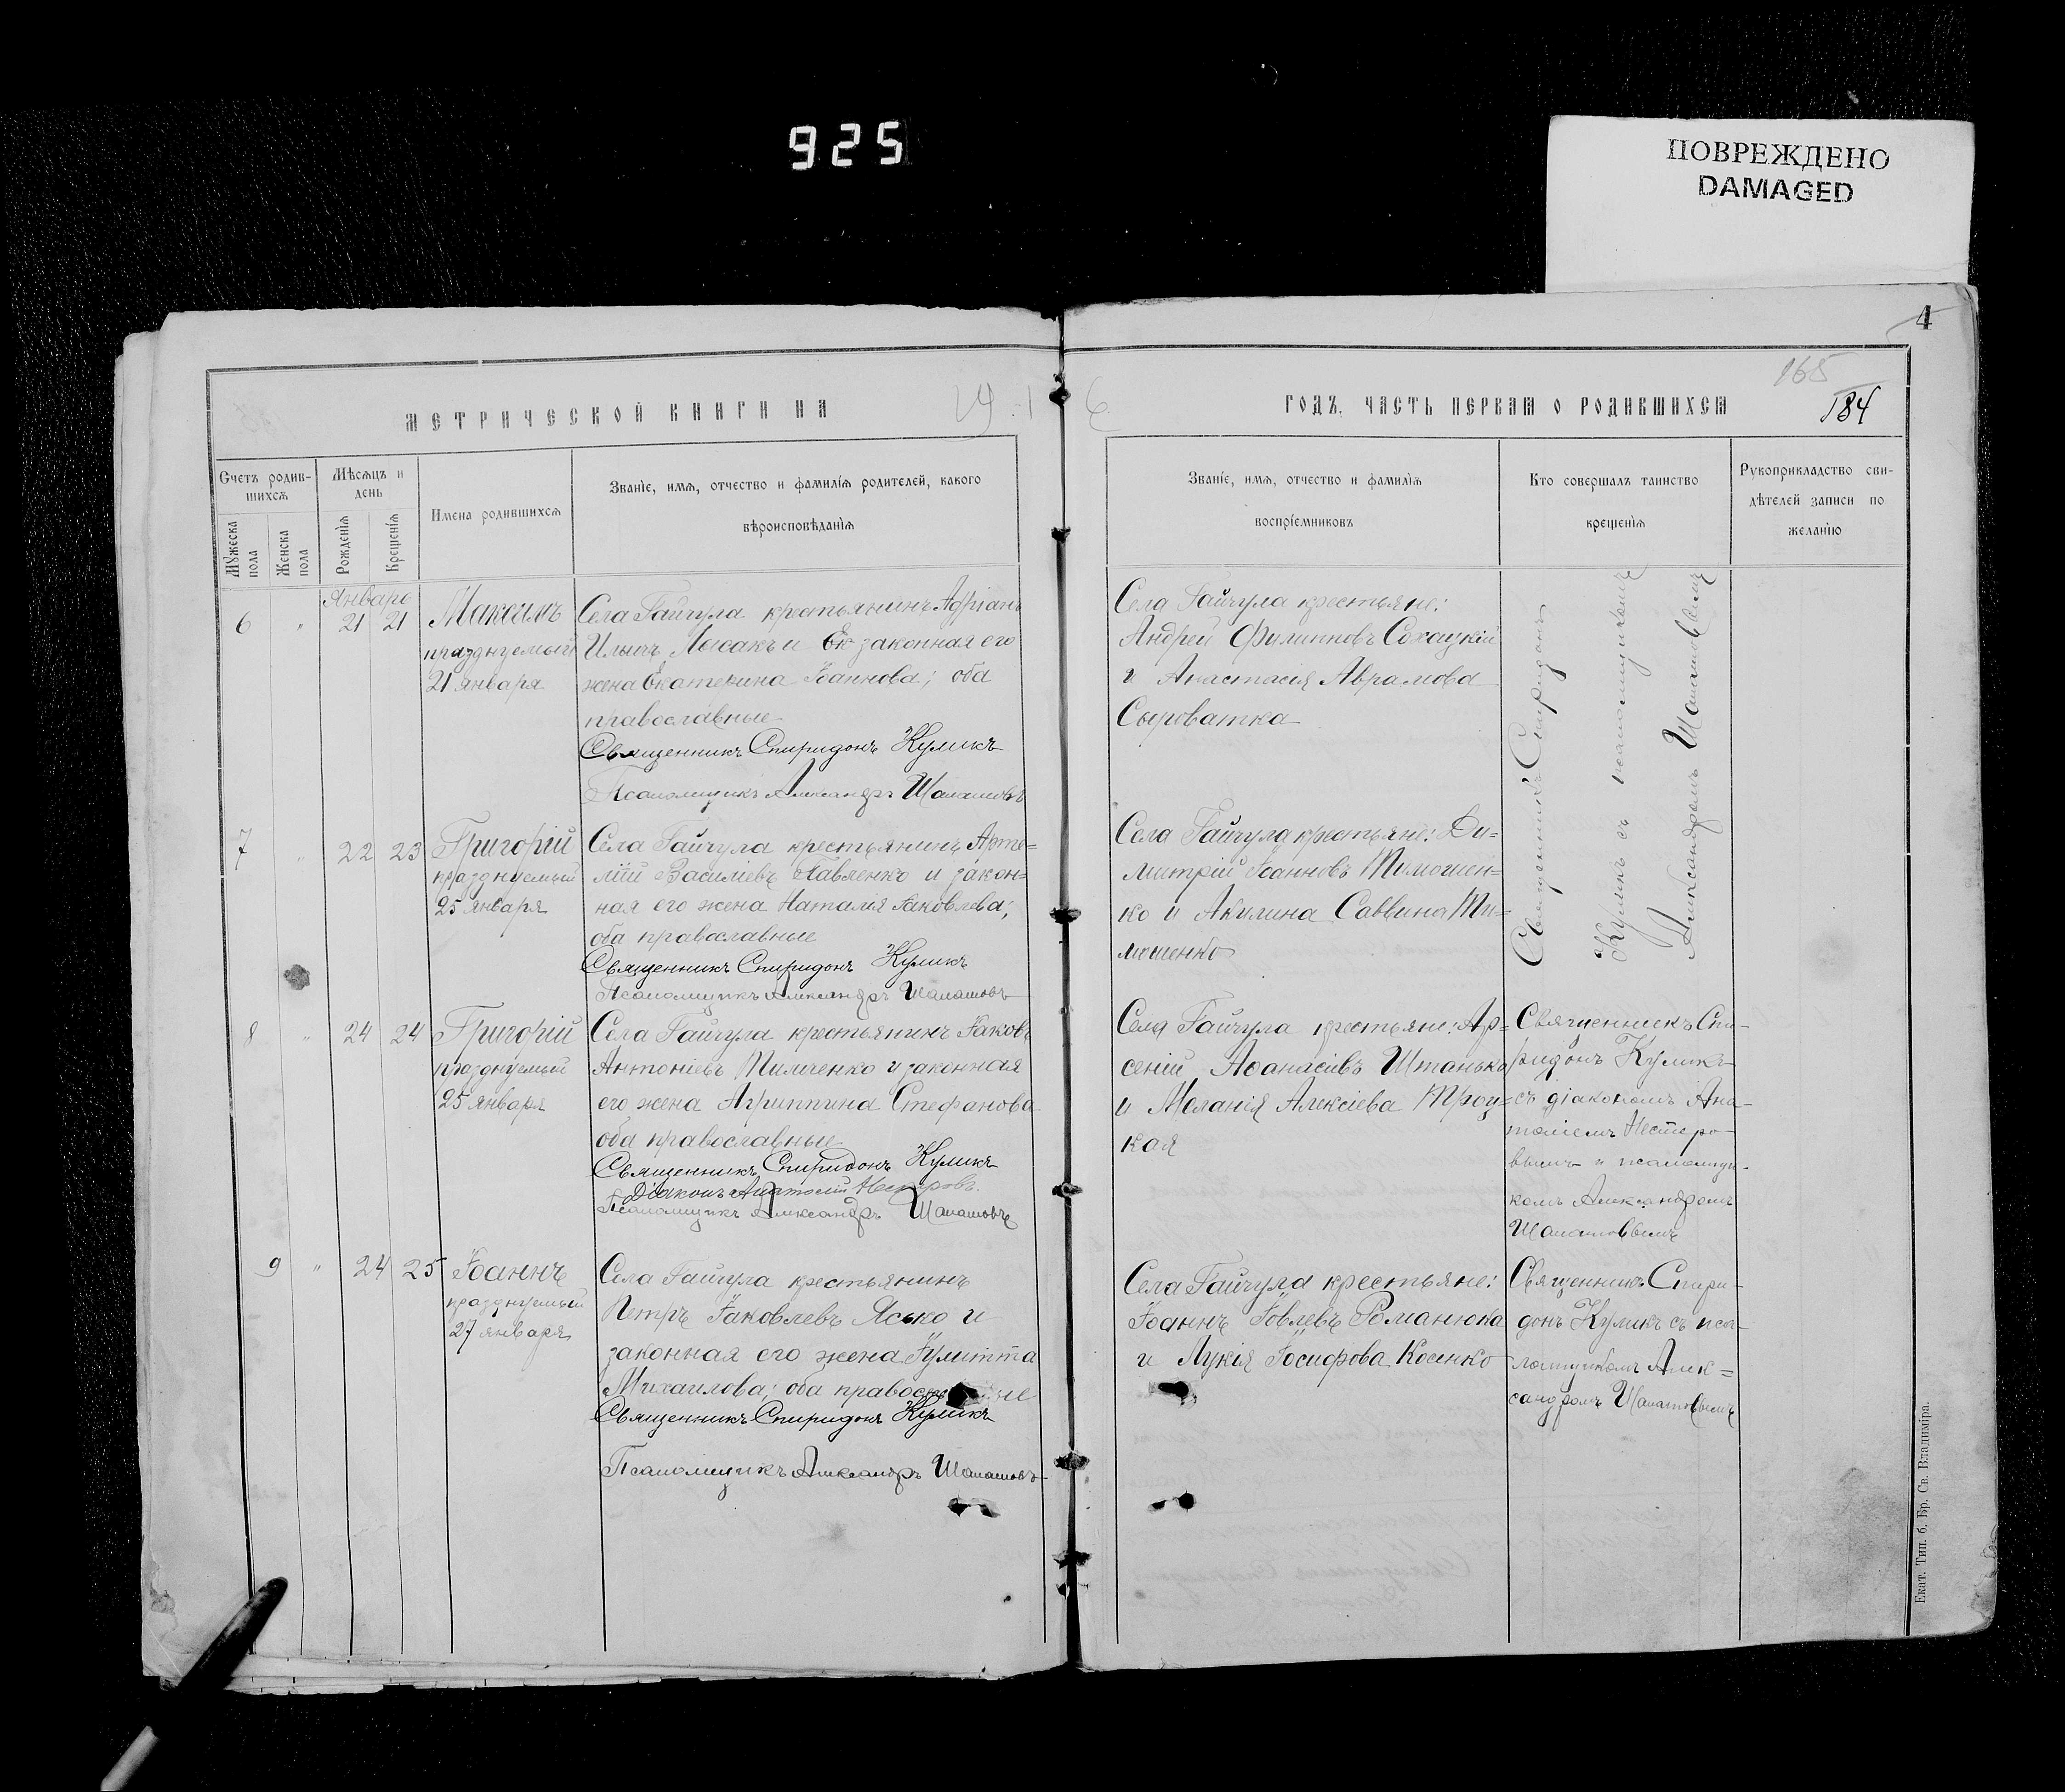 925
ПОВРЕЖДЕНО
DAMAGED
4
165
184
МЕТРИЧЕСКОЙ КНИГИ НА
ГОДЪ, ЧАСТЬ ПЕРВАЯ О РОДИВШИХСЯ
Счетъ родив-
шихся
Мужеска пола
Женска пола
Мѣсяцъ и
день
Рожденія
Крещенія
Имена родившихся
Званіе, имя, отчество и фамилія родителей, какого
вѣроисповѣданія
Званіе, имя, отчество и фамилія
воспріемниковъ
Кто совершалъ таинство
крещенія
Рукоприкладство сви-
дѣтелей записи по
желанію
Январь
6 " 21 21
Максимъ
празднуемый
21 января
Села Гайчула крестьянинъ Адріанъ
Ильичъ Лысакъ и законная его
жена Екатерина Іоаннова; оба
православные
Священникъ Спиридонъ Куликъ
Псаломщикъ Александръ Шалашовъ
Села Гайчула крестьяне:
Андрей Филипповъ Сохацкій
и Анастасія Аврамова
Сыроватка
Священникъ Спиридонъ
Куликъ съ псаломщикомъ
Александромъ Шалашовымъ
7 " 22 23
Григорій
празднуемый
25 января
Села Гайчула крестьянинъ Арте=
мій Василіевъ Павленко и закон=
ная его жена Наталія Іаковлева;
оба православные
Священникъ Спиридонъ Куликъ
Псаломщикъ Александръ Шалашовъ
Села Гайчула крестьяне: Ди=
митрій Іоанновъ Тимошен=
ко и Акилина Саввина Ти=
мошенко
8 " 24 24
Григорій
празднуемый
25 января
Села Гайчула крестьянинъ Іаковъ
Антоніевъ Пилченко и законная
его жена Агриппина Стефанова
оба православные
Священникъ Спиридонъ Куликъ
Діаконъ Анатолій Нестеровъ.
Псаломщикъ Александръ Шалашовъ
Села Гайчула крестьяне: Ар=
сеній Аѳанасіевъ Штанько
и Меланія Алексіева Троц=
кая
Священникъ Спи-
ридонъ Куликъ
съ діакономъ Ана-
толіемъ Нестеро-
вымъ и псаломщи-
комъ Александромъ
Шалашовымъ
9 " 24 25
Іоаннъ
празднуемый
27 января
Села Гайчула крестьянинъ
Петръ Іаковлевъ Ясько и
законная его жена Іулитта
Михаилова; оба
Священникъ Спиридонъ Куликъ
Псаломщикъ Александръ Шалашовъ
Села Гайчула крестьяне:
Іоаннъ Іовлевъ Романюка
и Лукія Іосифова Косенко
Священникъ Спири-
донъ Куликъ съ пса-
ломщикомъ Алек=
сандромъ Шалашовымъ
Екат. Тип. б. Бр. Св. Владиміра.